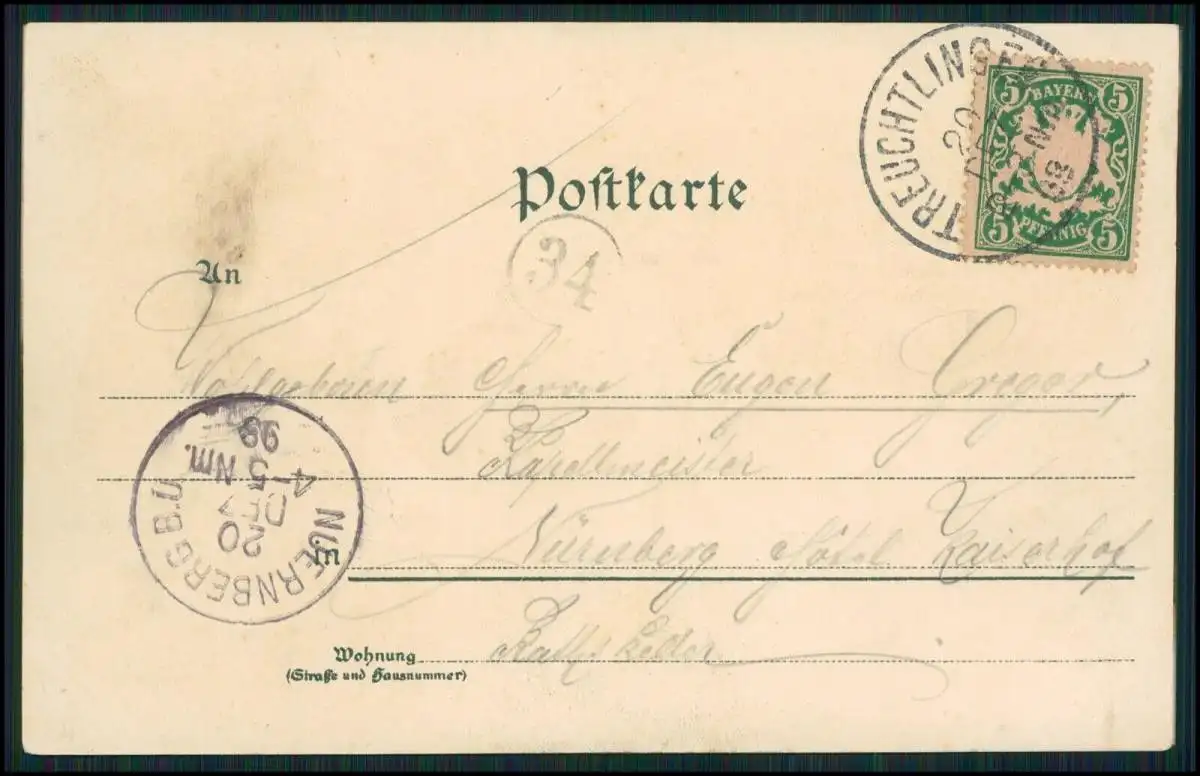 TREUCHTLINGEN
20
5 BAYERN 5
5 PFENNIG 5
Postkarte
34
An
Herrn Eugen Gregor,
Kapellmeister
NUERNBERG B.Ü.
20 DEZ
4-5 Nm.
99
in Nürnberg Hôtel Kaiserhof
Wohnung
(Straße und Hausnummer)